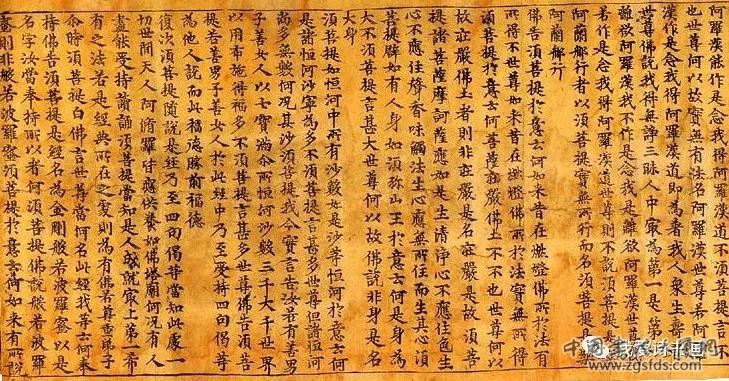 阿羅漢能作是念我得阿羅漢道不須菩提言不
世尊何以故實无有法名阿羅漢世尊若阿羅
漢作是念我得阿羅漢道即為著我人衆生壽
世尊佛說我得无諍三昧人中冣為第一是第一
離欲阿羅漢我不作是念我是離欲阿羅漢世尊
若作是念我得阿羅漢道世尊則不說須菩提是
阿蘭那行者以須菩提實无所行而名須菩提是
阿蘭那行
佛告須菩提於意云何如来昔在燃燈佛所於法有
所得不世尊如来昔在燃燈佛所於法實无所得
須菩提於意云何菩薩莊嚴佛土不不也世尊何以
故莊嚴佛土者則非莊嚴是名莊嚴是故須菩
提諸菩薩摩訶薩應如是生清淨心不應住色生
心不應住聲香味觸法生心應无所住而生其心須
菩提譬如有人身如須弥山王於意云何是身為
大不須菩提言甚大世尊何以故佛說非身是名
大身
須菩提如恒河中所有沙數如是沙等恒河於意云何
是諸恒河沙寧為多不須菩提言甚多世尊但諸恒河
尚多无數何況其沙須菩提我今實言告汝若有善男
子善女人以七寶滿尒所恒河沙數三千大千世界
以用布施得福多不須菩提言甚多世尊佛告須菩
提若善男子善女人於此經中乃至受持四句偈等
為他人說而此福德勝前福德
復次須菩提隨說是經乃至四句偈等當知此處一
切世間天人阿脩羅皆應供養如佛塔廟何況有人
盡能受持讀誦須菩提當知是人成就冣上第一希
有之法若是經典所在之處則為有佛若尊重弟子
尒時須菩提白佛言世尊當何名此經我等云何奉
持佛告須菩提是經名為金剛般若波羅蜜以是
名字汝當奉持所以者何須菩提佛說般若波羅
蜜則非般若波羅蜜須菩提於意云何如来有所說
www.zgsfds.com